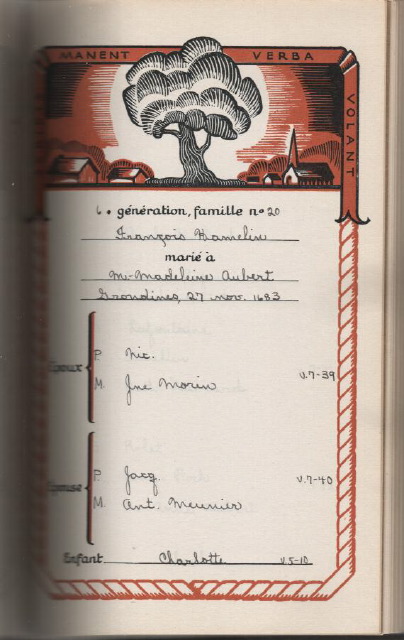 MANENT VERBA VOLANT
6e génération, famille nº 20
François Hamelin
marié à
M.-Madeleine Aubert
Grondines, 27 nov. 1683
Époux
P. Nic.
M. Jne Morin
V.7-39
Épouse
P. Jacq.
M. Ant. Meunier
V.7-40
Enfant Charlotte V.5-10